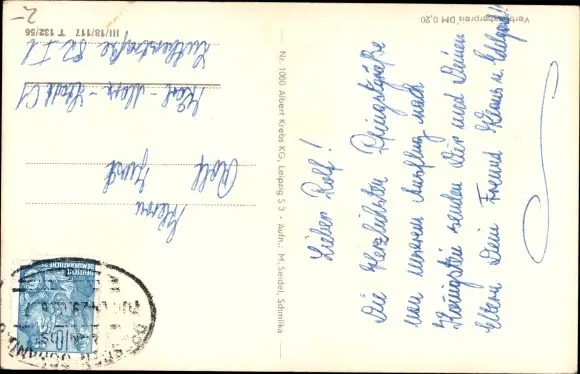 2-
III/18/117 T 132/56
Verbraucherpreis DM 0,20
Nr. 1060 Albert Krebs KG, Leipzig S 3 · Aufn.: M. Seidel, Schmilka
Lieber Rolf!
Die herzlichsten Pfingstgrüße
von unserem Ausflug nach
Königstein senden Dir und Deinen
Eltern Dein Freund Klaus u. Edelgard!
Herrn
Rolf
Karl-Marx-Stadt C1
Lutherstraße 82
DEUTSCHE
DEMOKRATISCHE
10